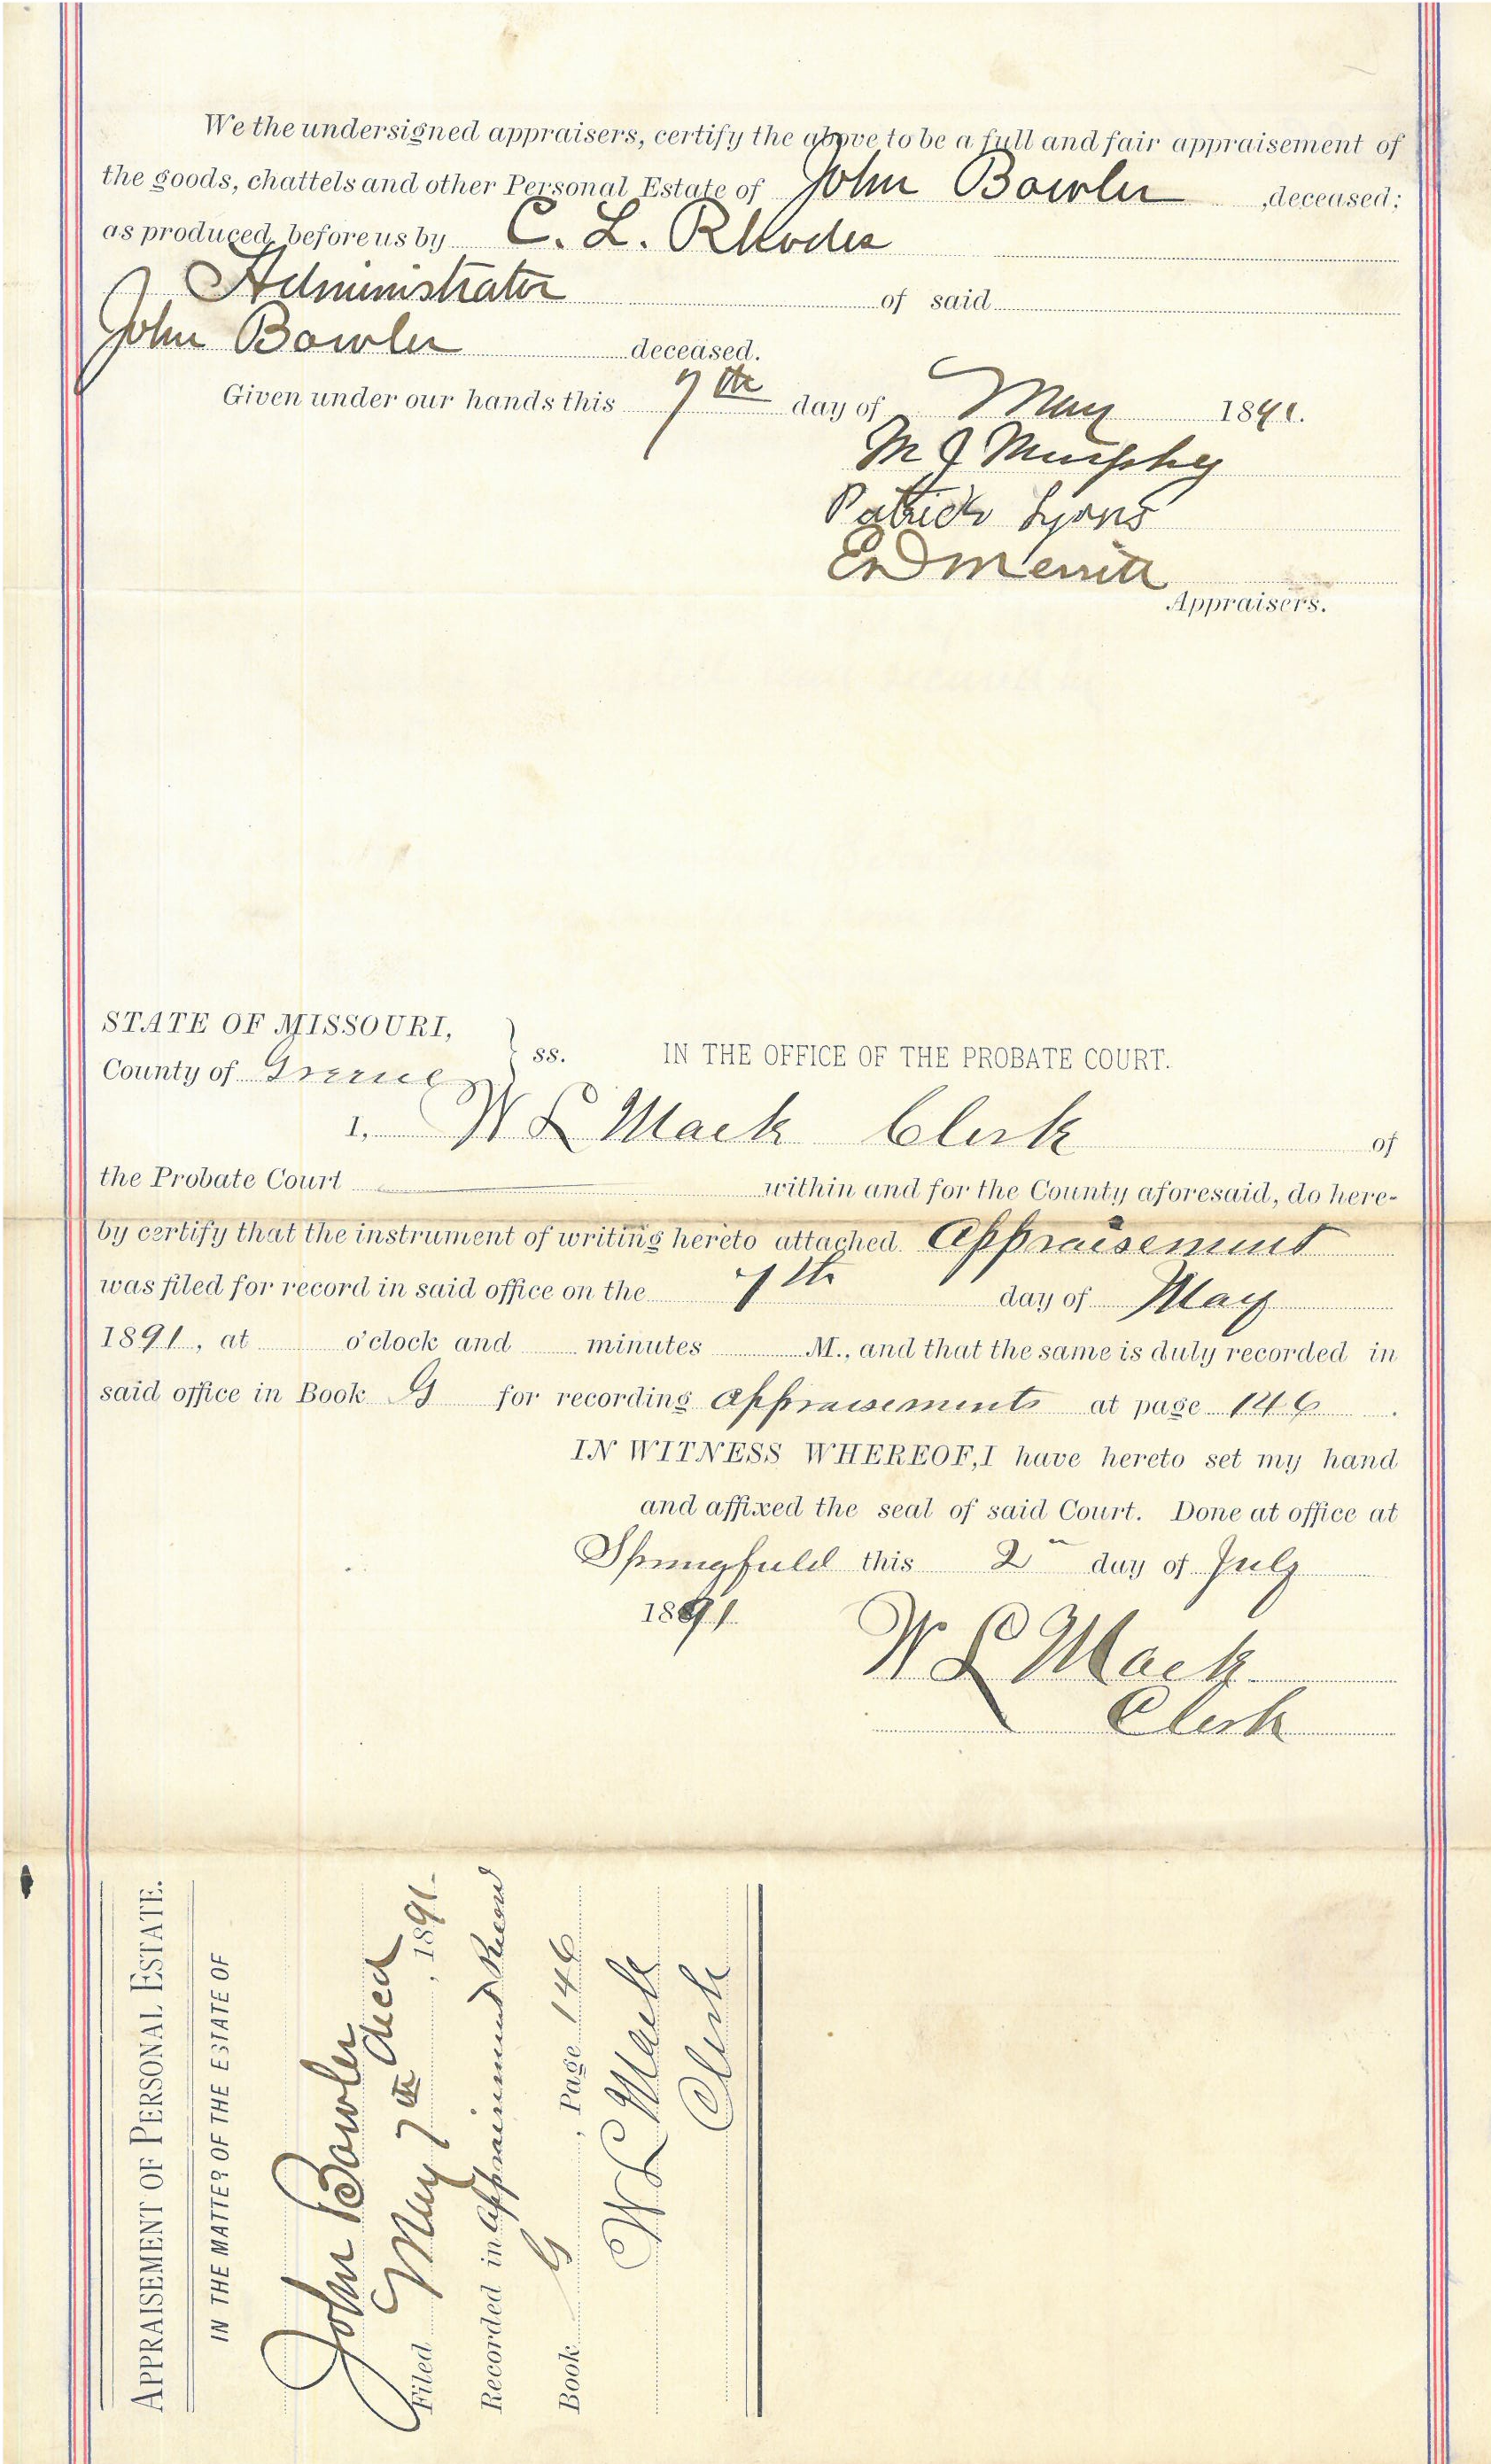 We the undersigned appraisers, certify the above to be a full and fair appraisement of
the goods, chattels and other Personal Estate of John Bowler ,deceased;
as produced before us by C. L. Rhodes
Administrator of said
John Bowler deceased.
Given under our hands this 7th day of May 1891.
M J Murphy
Patrick Lyons
E D Merritt
Appraisers.
STATE OF MISSOURI,
County of Greene } ss. IN THE OFFICE OF THE PROBATE COURT.
I, W L Mack Clerk of
the Probate Court within and for the County aforesaid, do here-
by certify that the instrument of writing hereto attached Appraisement
was filed for record in said office on the 7th day of May
1891, at o'clock and minutes M., and that the same is duly recorded in
said office in Book G for recording appraisements at page 146.
IN WITNESS WHEREOF, I have hereto set my hand
and affixed the seal of said Court. Done at office at
Springfield this 2" day of July
1891
W L Mack
Clerk
APPRAISEMENT OF PERSONAL ESTATE.
IN THE MATTER OF THE ESTATE OF
John Bowler
decd
Filed May 7th, 1891.
Recorded in Appraisement Record
Book G, Page 146
W L Mack
Clerk